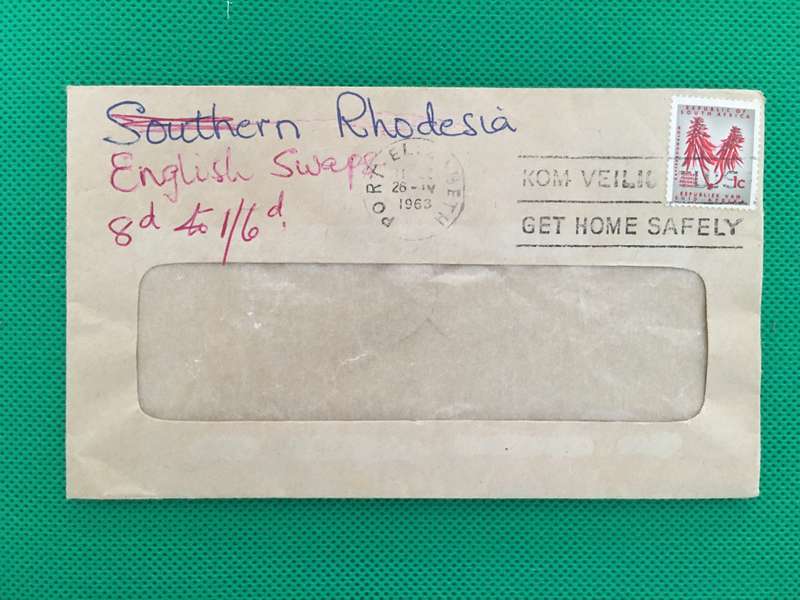 Southern Rhodesia
English Swaps
8d to 1/6d.
PORT ELIZABETH
26-IV
1963
KOM VEILIG TUIS
GET HOME SAFELY
REPUBLIC OF
SOUTH AFRICA
1c
REPUBLIEK VAN
SUID-AFRIKA